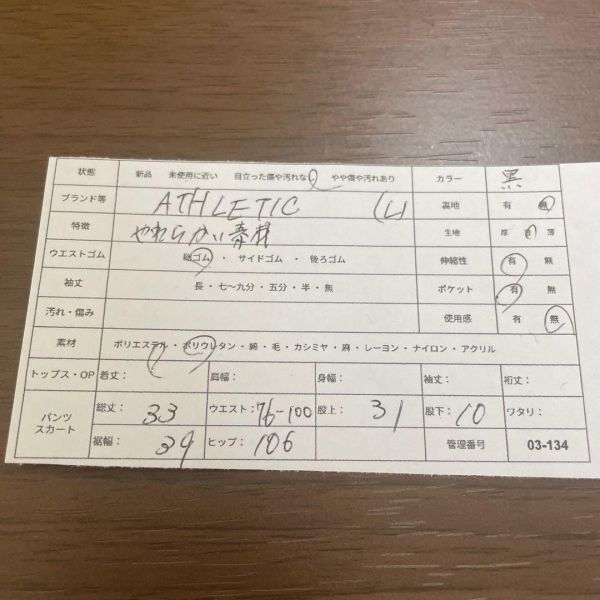 状態 新品 未使用に近い 目立った傷や汚れなし やや傷や汚れあり カラー 黒
ブランド等 ATHLETIC (L) 裏地 有 無
特徴 やわらかい素材 生地 厚 普 薄
ウエストゴム 総ゴム ・ サイドゴム ・ 後ろゴム 伸縮性 有 無
袖丈 長・七~九分・五分・半・無 ポケット 有 無
汚れ・傷み 使用感 有 無
素材 ポリエステル・ポリウレタン・綿・毛・カシミヤ・麻・レーヨン・ナイロン・アクリル
トップス・OP 着丈: 肩幅: 身幅: 袖丈: 裄丈:
パンツ スカート 総丈: 33 ウエスト: 76-100 股上: 31 股下: 10 ワタリ:
裾幅: 39 ヒップ: 106 管理番号 03-134